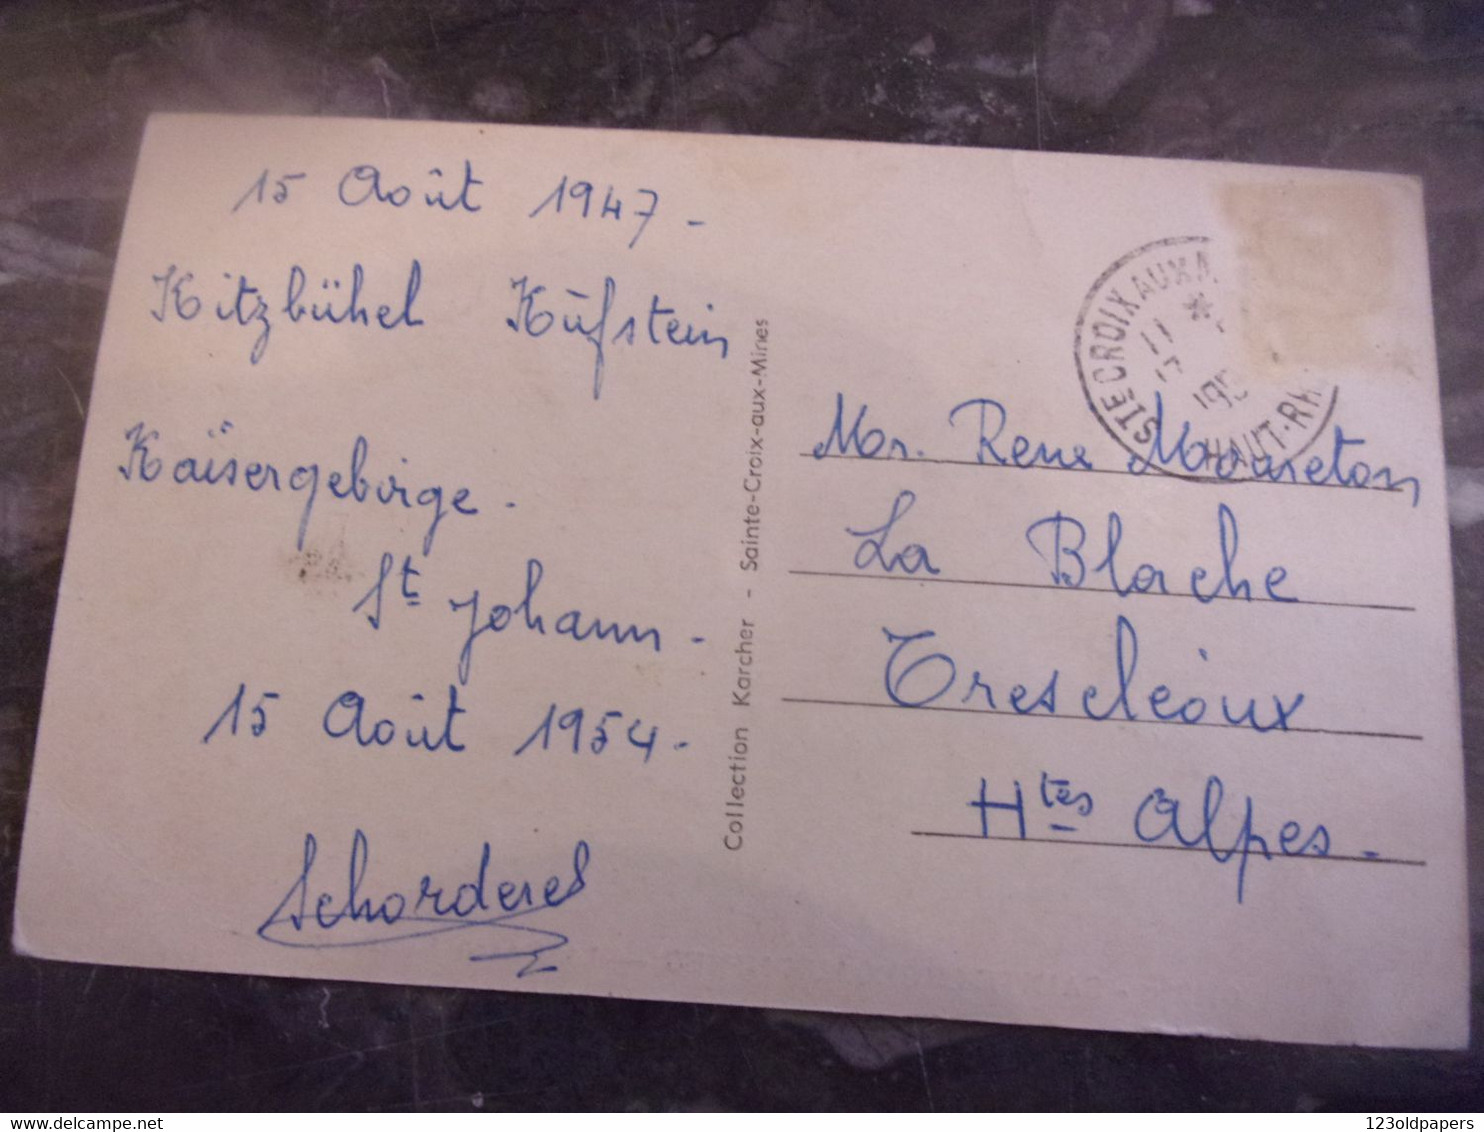 15 Août 1947 -
Kitzbühel Kufstein
Kaisergebirge.
St Johann -
15 Août 1954 -
Collection Karcher - Sainte-Croix-aux-Mines
STE CROIX AUX M
*
11
195
HAUT-RH
Mr. René
La Blache
Trescléoux
Htes Alpes -
123oldpapers